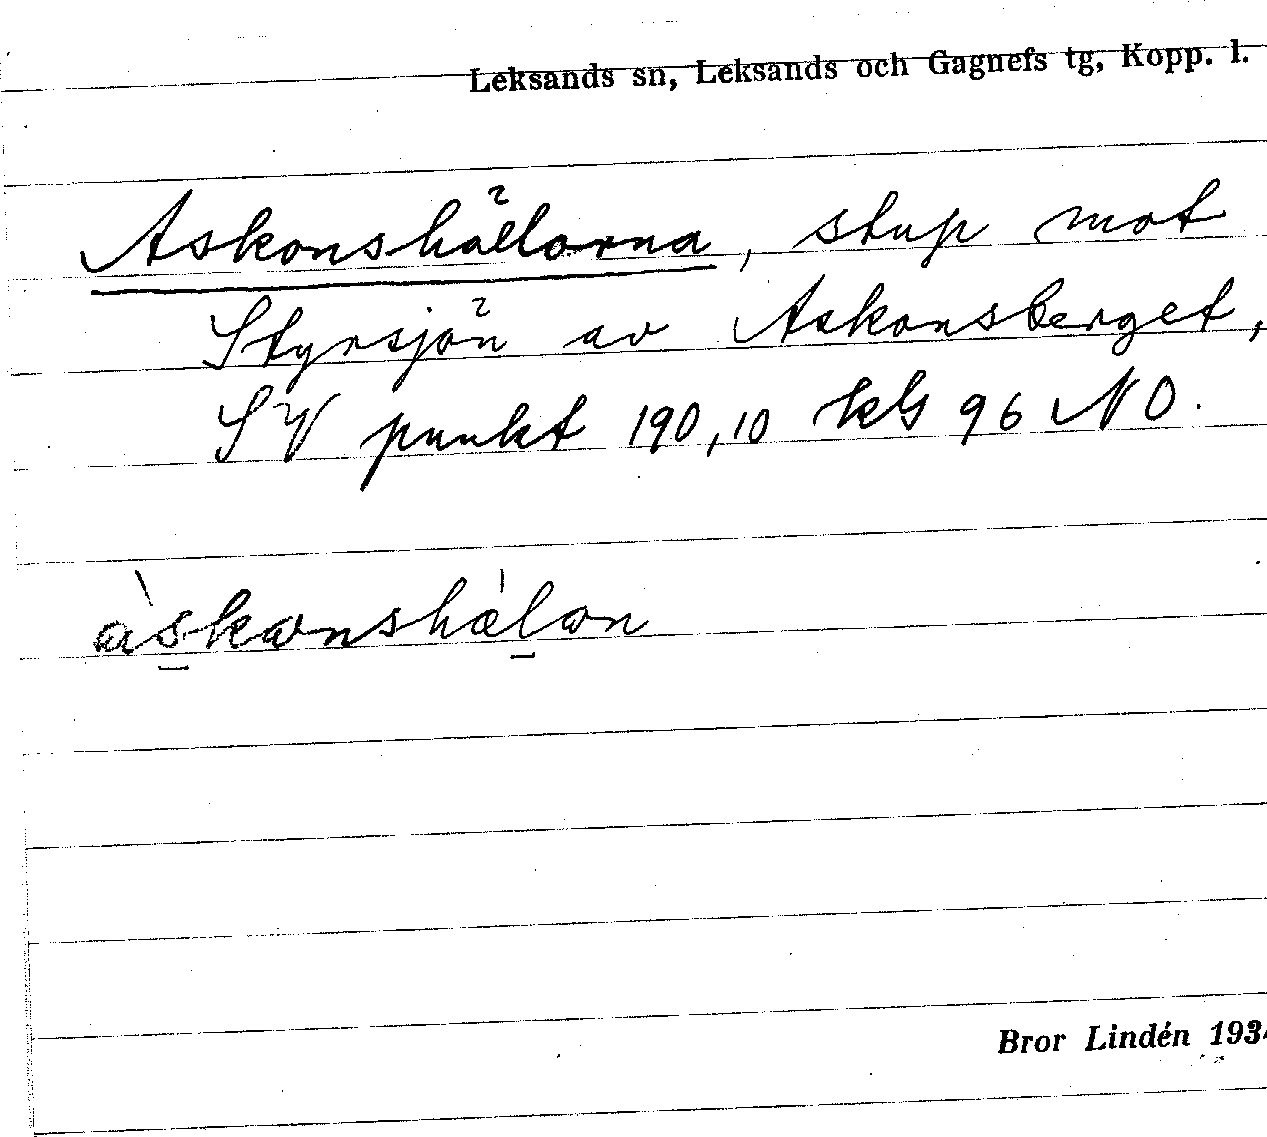 Leksands sn, Leksands och Gagnefs tg, Kopp. l.
Askonshällorna, stup mot
Styrsjön av Askonsberget,
SV punkt 190,10 kbl 96 NO.
àskonshǽlon
Bror Lindén 1934